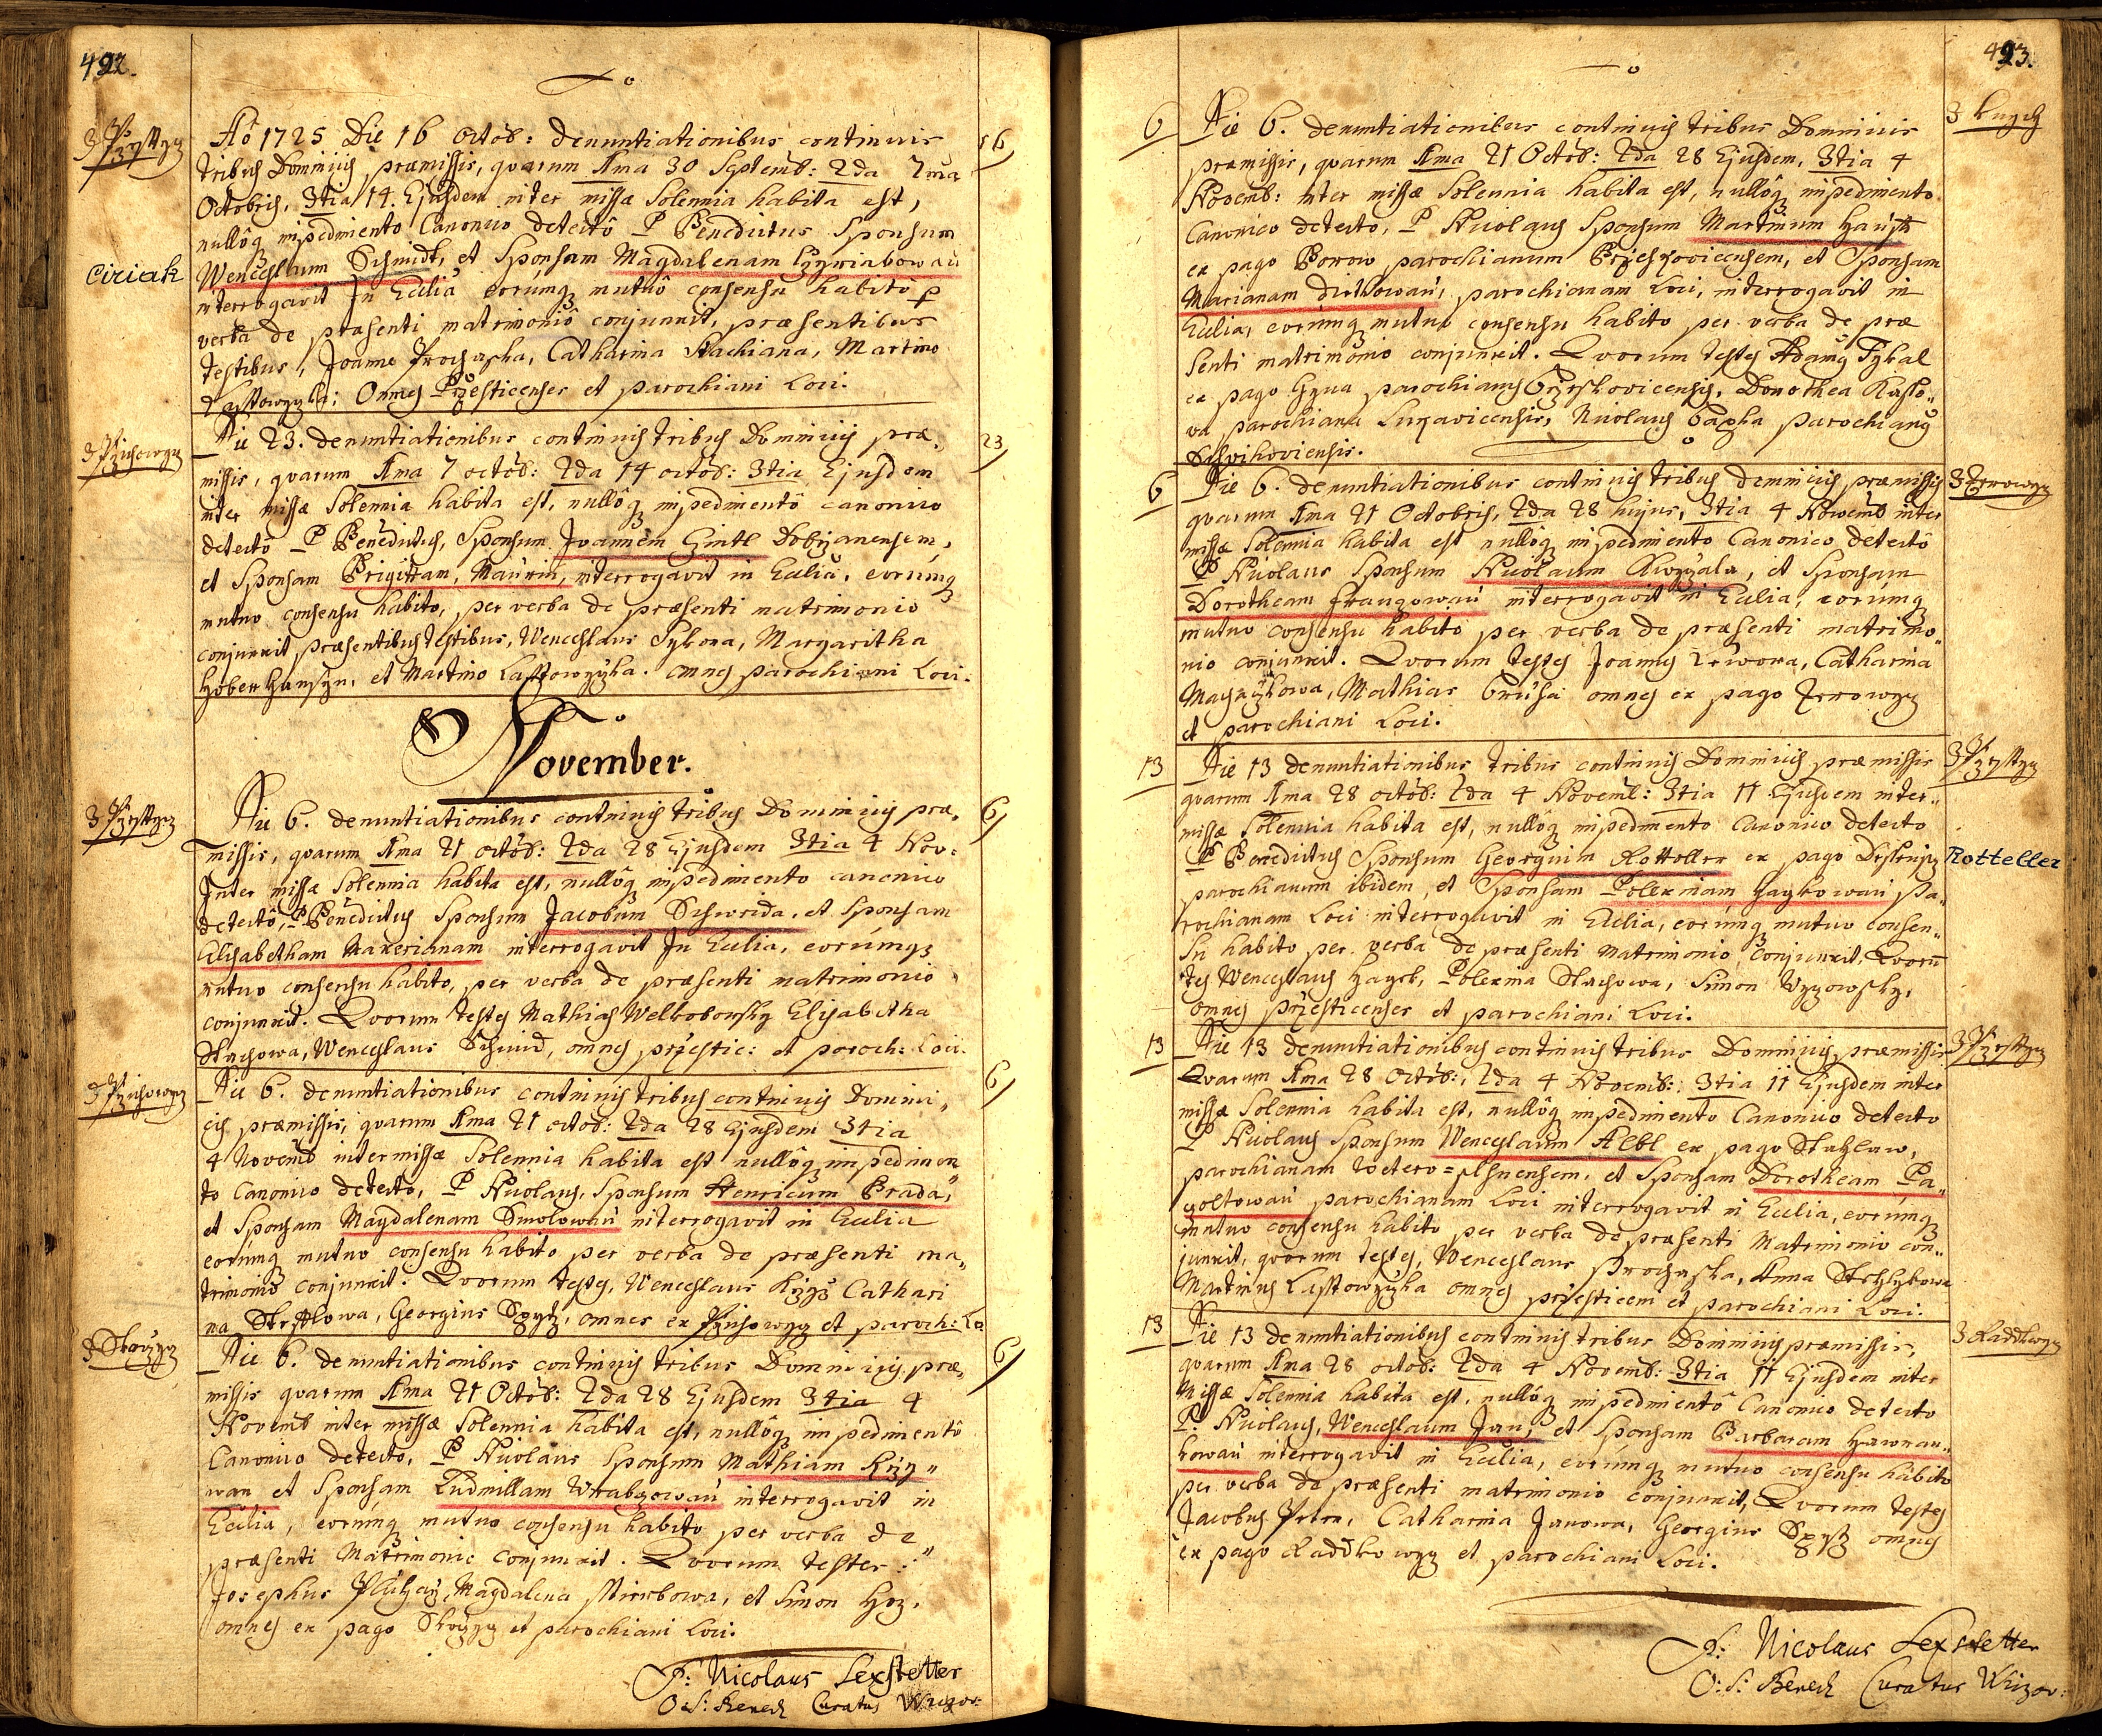 492.
Aô 1725 Die 16 Octob: denuntiationibus continuis
z Przesstycz
16
tribus Dominicis præmissis, quarum 1ma 30 Septemb: 2da 7ma
Octobris, 3tia 14 Ejusdem inter missæ Solennia habita est,
nullôq impedimento Canonico detectô P Benedictus Sponsum
Ciriak
Wenceslaum Schmidt, et Sponsam Magdalenam
interrogavit In Ecclia eorúmq mutuô consensu habitô p
verba de præsenti matrimoniô conjunxit, præsentibus
testibus, Joanne Prochaska, Catharina Stachiana, Martino
Lasstowyczka; Omnes Przesticenses et parochiani Loci.
Die 23. denuntiationibus continuis tribus Dominicis præ„
23
missis, quarum 1ma 7 octob: 2da 14 octob: 3tia Ejusdem
inter missæ Solennia habita est, nullôq impedimentô canonico
detectô P Benedictus, Sponsum Joannem Gintl Dobrzanensem,
et Sponsam Brigittam, Maurin, interrogavit in Ecclia, eorúmq
mutuo consensu habito, per verba de præsenti matrimonio
conjunxit præsentibus testibus, Wenceslaus Sykora, Margaritha
et Martino Lasstowyczka. omnes parochiani Loci.
November.
Die 6. denuntiationibus continuis tribus Dominicis præ„
z Przesstycz
6
missis, quarum 1ma 21 octob: 2da 28 Ejusdem 3tia 4 Nov:
Inter missæ Solennia habita est, nullôq impedimento canonico
detectô, P Benedictus Sponsum Jacobum Schweida, et Sponsam
Elisabetham Maxerianam interrogavit In Ecclia, eorúmq
mutuo consensu habito, per verba de præsenti matrimonio
conjunxit. Quorum testes Mathias Welkoborsky Elisabetha
Stachowa, Wenceslaus Schmid, omnes przestic: et paroch: Loci.
Die 6. denuntiationibus continuis tribus continuis Domini„
6
cis præmissis, quarum 1ma 21 octob: 2da 28 Ejusdem 3tia
4 Novemb inter missæ Solennia habita est nullôq impedimen„
to Canonico detecto, P Nicolaus, Sponsum Henricum Brada,
et Sponsam Magdalenam Smolowau interrogavit in Ecclia
eorúmq mutuo consensu habito per verba de præsenti ma„
trimonio conjunxit. Quorum testes, Wenceslaus Cathari
na Georgius omnes ex et paroch: Lo
Die 6. denuntiationibus continuis tribus Dominicis præ„
6
missis quarum 1ma 21 Octob: 2da 28 Ejusdem 3tia 4
Novemb inter missæ Solennia habita est, nullôq impedimentô
Canonico detecto, P Nicolaus Sponsum Mathiam Krzy„
wan et Sponsam Ludmillam Wrabczowau interrogavit in
Ecclia, eorúmq mutuo consensu habito per verba de
præsenti Matrimonio conjunxit. Quorum testes:
Josephus Magdalena et Simon
omnes ex pago et parochiani Loci.
F: Nicolaus Lexstetter
O: S: Bened: Curatus
493.
z
6
Die 6. denuntiationibus continuis tribus Dominicis
præmissis, quarum 1ma 21 Octob: 2da 28 Ejusdem, 3tia 4
Novemb: inter missæ Solennia habita est, nullôq impedimento
Canonico detecto, P Nicolaus Sponsum Martinum
ex pago Borow parochianum et Sponsam
Marianam parochianam Loci, interrogavit in
Ecclia, eorúmq mutuo consensu habito per verba de præ
senti matrimonio conjunxit. Quorum testes Adamus Pykal
ex pago parochianus Dorothea Kasso„
va parochiana Lukavicensis, Nicolaus parochianus
Schvihoviensis.
6
Die 6. denuntiationibus continuis tribus dominicis præmissis
quarum 1ma 21 Octobris, 2da 28 hujus, 3tia 4 Novemb inter
missæ Solennia habita est nullôq impedimento Canonico detectô
P Nicolaus Sponsum Nicolaum et Sponsam
Dorotheam interrogavit in Ecclia, eorúmq
mutuo consensu habito per verba de præsenti matrimo„
nio conjunxit. Quorum testes Joannes Catharina
Mathias omnes ex pago
et parochiani Loci.
13
Die 13 denuntiationibus tribus continuis Dominicis præmissis
z Przesstycz
quarum 1ma 28 octob: 2da 4 Novemb: 3tia 11 Ejusdem inter„
missæ Solennia habita est, nullôq impedimento Canonico detecto
P Benedictus Sponsum Georgium Rotteller ex pago
Rotteller
parochianum ibidem, et Sponsam Polexinam Haykowau pa„
rochianam Loci interrogavit in Ecclia, eorúmq mutuo consen„
su habito per verba de præsenti Matrimonio conjunxit, Quorū
tes Wenceslaus Hayek, Polexina Stachowa, Simon
omnes przesticenses et parochiani Loci.
13
Die 13 denuntiationibus continuis tribus Dominicis præmissis
z Przesstycz
Quarum 1ma 28 Octob:, 2da 4 Novemb: 3tia 11 Ejusdem inter
missæ Solennia habita est, nullôq impedimento Canonico detecto
P Nicolaus Sponsum Wenceslaum Albl ex pago Stahlaw,
parochianam Vetero=plsnensem, et Sponsam Dorotheam Pa„
goltowau parochianam Loci interrogavit in Ecclia, eorúmq
mutuo consensu habito per verba de præsenti Matrimonio con„
junxit, quorum testes, Wenceslaus Prochaska, Anna
Martinus Lasstowyczka omnes przesticen: et parochiani Loci.
13
Die 13 denuntiationibus continuis tribus Dominicis præmissis,
quarum 1ma 28 octob: 2da 4 Novemb: 3tia 11 Ejusdem inter
Missæ Solennia habita est, nullôq impedimentô Canonico detecto
P Nicolaus, Wenceslaum Jan, et Sponsam Barbaram Hawran„
kowau interrogavit in Ecclia, eorúmq mutuo consensu habito
per verba de præsenti matrimonio conjunxit, Quorum testes
Jacobus Catharina Janowa, Georgius omnes
ex pago et parochiani Loci.
F: Nicolaus Lexstetter
O: S: Bened: Curatus